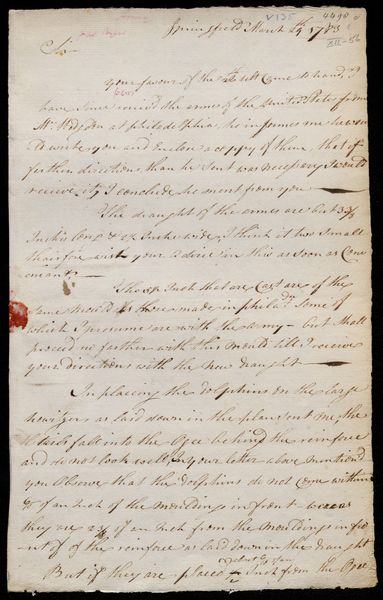 V135
4490
XII-56
Springfield March 29th 1783
Sir
your favour of the ult Came to hand, I
have since receivd the armes of the United States from
Mr Hodgdon at philadelphia, he informes me he
write you and Enclose a Coppy of them, that if
farther directions than he sent was necessary I would
receive it, I conclude he ment from you
The draught of the armes are but 3
Inches long & Inches wide, I think it two small
thairfore wish your advice in this as soon as Conv
eneant
The Inch that are Cast are of the
same mould as those made in philad some of
which I presume are with the army - but shall
proceed no farther with this mould till I receive
your directions with the new draught
In placeing the Dolphins on the large
howitzers as laid down in the plan sent me, the
fall into the Ogee behind the reinforce
and do not look well, In your letter above mentiond
you Observe that the Dolphins do not come within
of an Inch of the mouldings in front
they are of an Inch from the mouldings in fro
nt of the reinforce as laid down in the draught
But if they are placed Inch from the Ogee